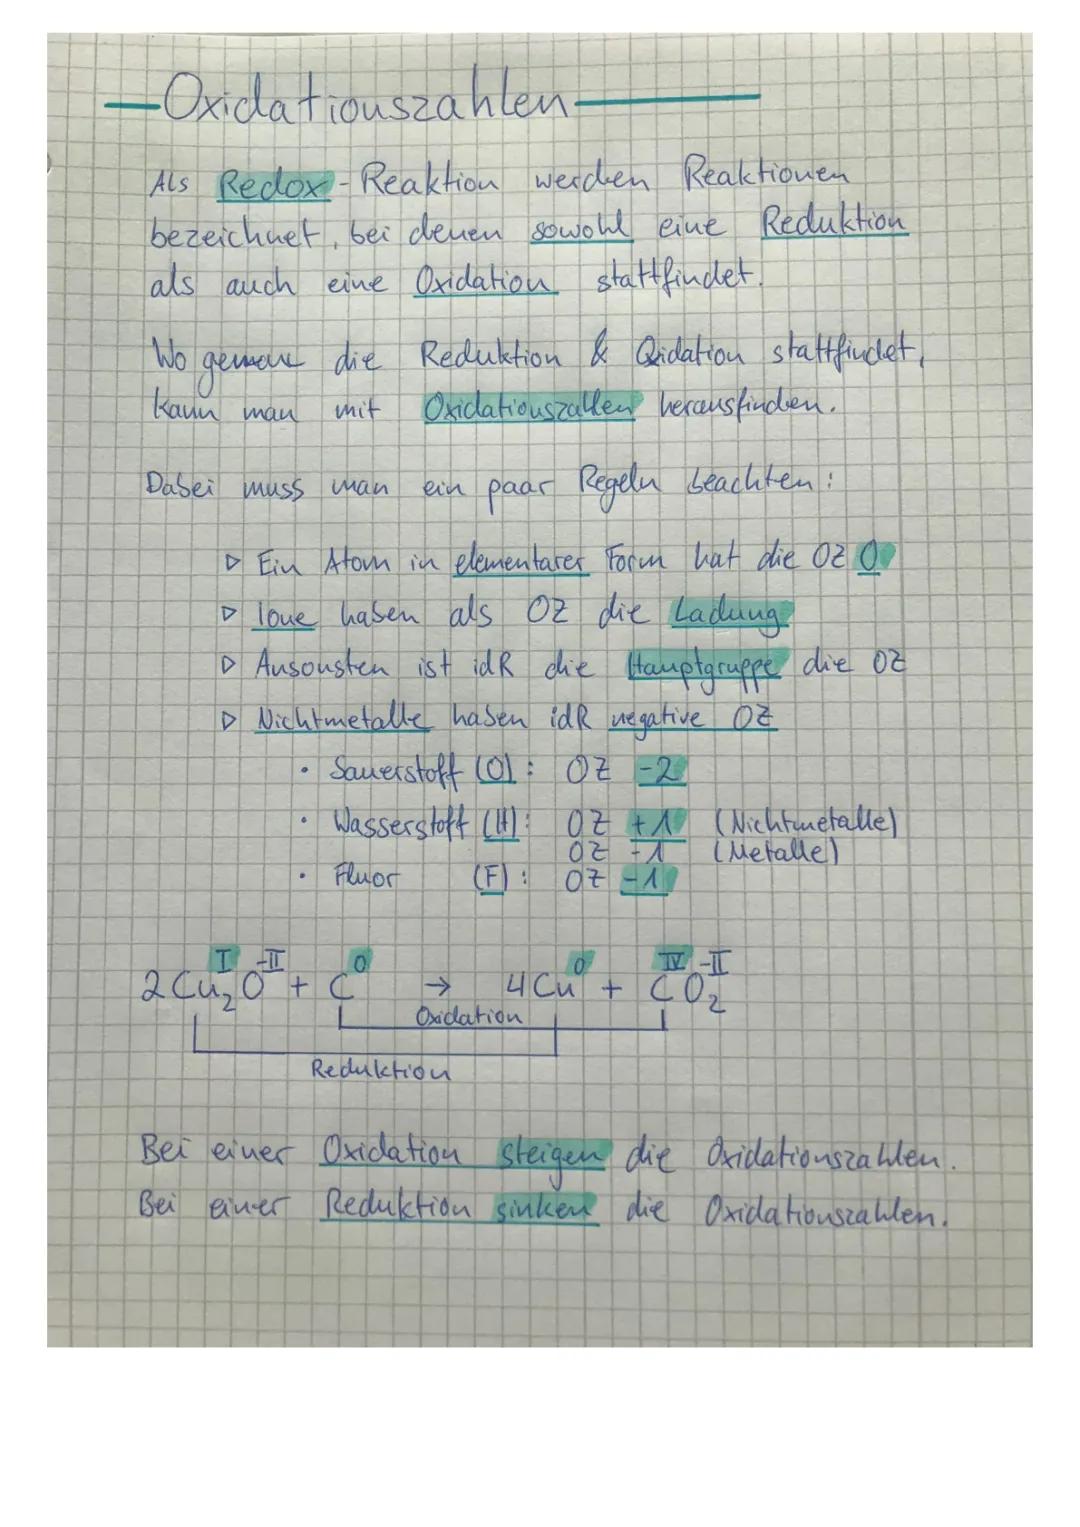 Oxidationszahlen
Als Redox-Reaktion werden Reaktionen
bezeichnet, bei denen sowohl eine Reduktion
als auch eine Oxidation stattfindet.
Wo genau die Reduktion & Oxidation stattfindet,
kann man mit Oxidationszahlen herausfinden.
Dabei muss man ein paar Regeln beachten:
▷ Ein Atom in elementarer Form hat die OZ 0
▷ Ione haben als OZ die Ladung
▷ Ansonsten ist idR die Hauptgruppe die OZ
▷ Nichtmetalle haben idR negative OZ
• Sauerstoff (O): OZ -2
• Wasserstoff (H): OZ +1 (Nichtmetalle)
OZ -1 (Metalle)
• Fluor (F): OZ -1
I -II 0 0 IV -II
2 Cu₂O + C → 4 Cu + CO₂
Oxidation
Reduktion
Bei einer Oxidation steigen die Oxidationszahlen.
Bei einer Reduktion sinken die Oxidationszahlen.